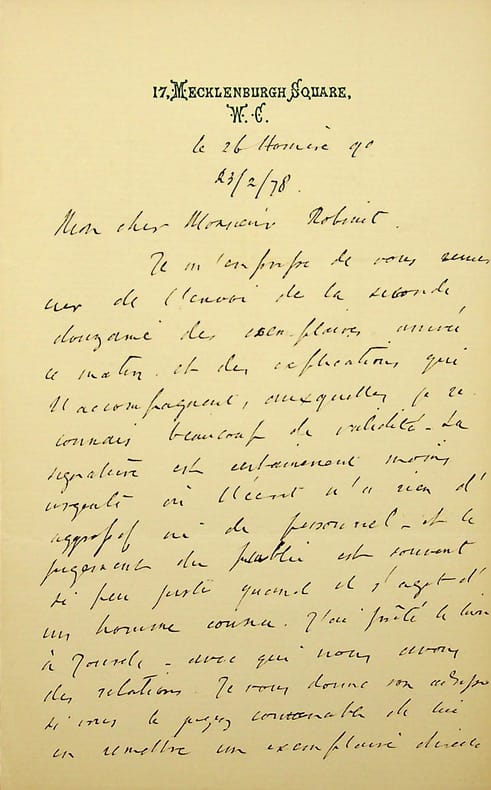 17, MECKLENBURGH SQUARE,
W. C.
le 26 Homère 90
23/2/78.
Mon cher Monsieur Robinet.
Je m'empresse de vous remer
cier de l'envoi de la seconde
douzaine des exemplaires arrivé
ce matin. et des explications qui
l'accompagnent, auxquelles je re
connais beaucoup de validité. La
signature est certainement moins
urgente où l'écrit n'a rien d'
aggressif ni de personnel. et le
jugement du public est souvent
si peu juste quand il s'agit d'
un homme connu. J'ai prêté le livre
à - avec qui nous avons
des relations. Je vous donne son adresse
si vous le jugez convenable de lui
en remettre un exemplaire directe